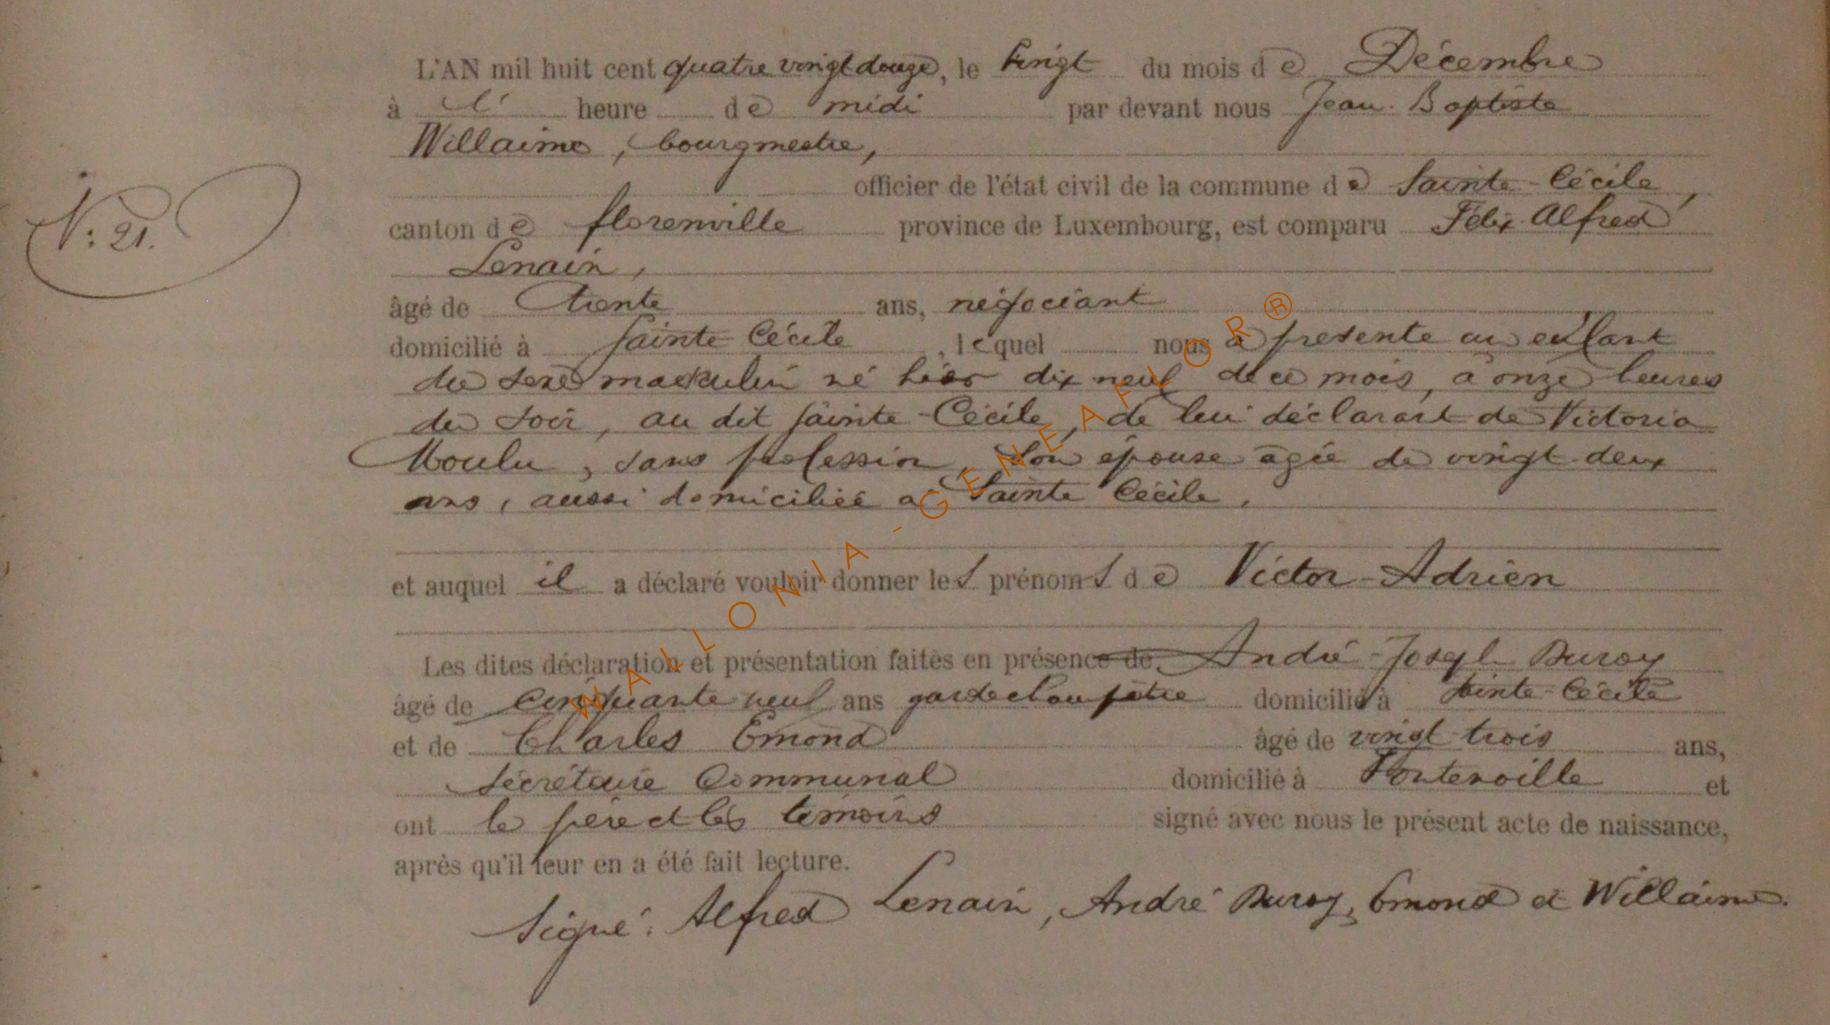 L'AN mil huit cent quatre vingt douze, le vingt du mois de Décembre
à l' heure de midi par devant nous Jean Baptiste
Willaime, bourgmestre,
officier de l'état civil de la commune de Sainte-Cécile,
N: 21.
canton de florenville province de Luxembourg, est comparu Félix Alfred
Lenain,
âgé de trente ans, négociant
domicilié à Sainte Cécile, lequel nous a présenté un enfant
du sexe masculin né hier dix neuf de ce mois, à onze heures
du soir, au dit Sainte-Cécile, de lui déclarant de Victoria
Moulu, sans profession, son épouse âgée de vingt-deux
ans, aussi domiciliée à Sainte Cécile.
et auquel il a déclaré vouloir donner les prénoms de Victor-Adrien
Les dites déclaration et présentation faites en présence de André-Joseph Duroy
âgé de cinquante neuf ans garde champêtre domicilié à Sainte-Cécile
et de Charles Emond âgé de vingt trois ans,
secrétaire Communal domicilié à Fontenoille et
ont le père et les témoins signé avec nous le présent acte de naissance,
après qu'il leur en a été fait lecture.
Signé: Alfred Lenain, André Duroy, Emond et Willaime.
WALLONIA-GENEAFLOR®